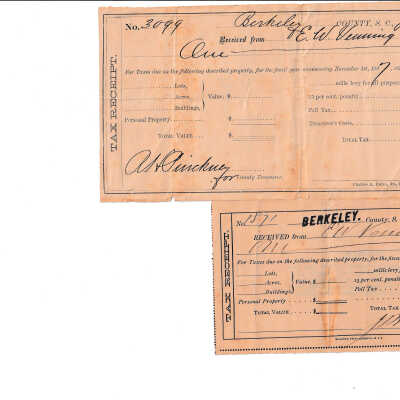 No. 3099 Berkeley COUNTY, S. C.
Received from E. W. Venning
One
For Taxes due on the following described property, for the fiscal year commencing November 1st, 18 7,
Lots, mills levy for all purposes
Acres, Value $ 15 per cent. penalty
Buildings, Poll Tax
Personal Property Treasurer's Costs
TOTAL VALUE $ TOTAL TAX
A H Pinckney
for County Treasurer.
TAX RECEIPT.
No. 1571 BERKELEY. County, S.
RECEIVED from E W
One
For Taxes due on the following described property, for the fiscal
Lots, mills levy
Acres, Value $ 15 per cent. penalty
Buildings Poll Tax
Personal Property $
TOTAL VALUE $ TOTAL TAX
TAX RECEIPT.